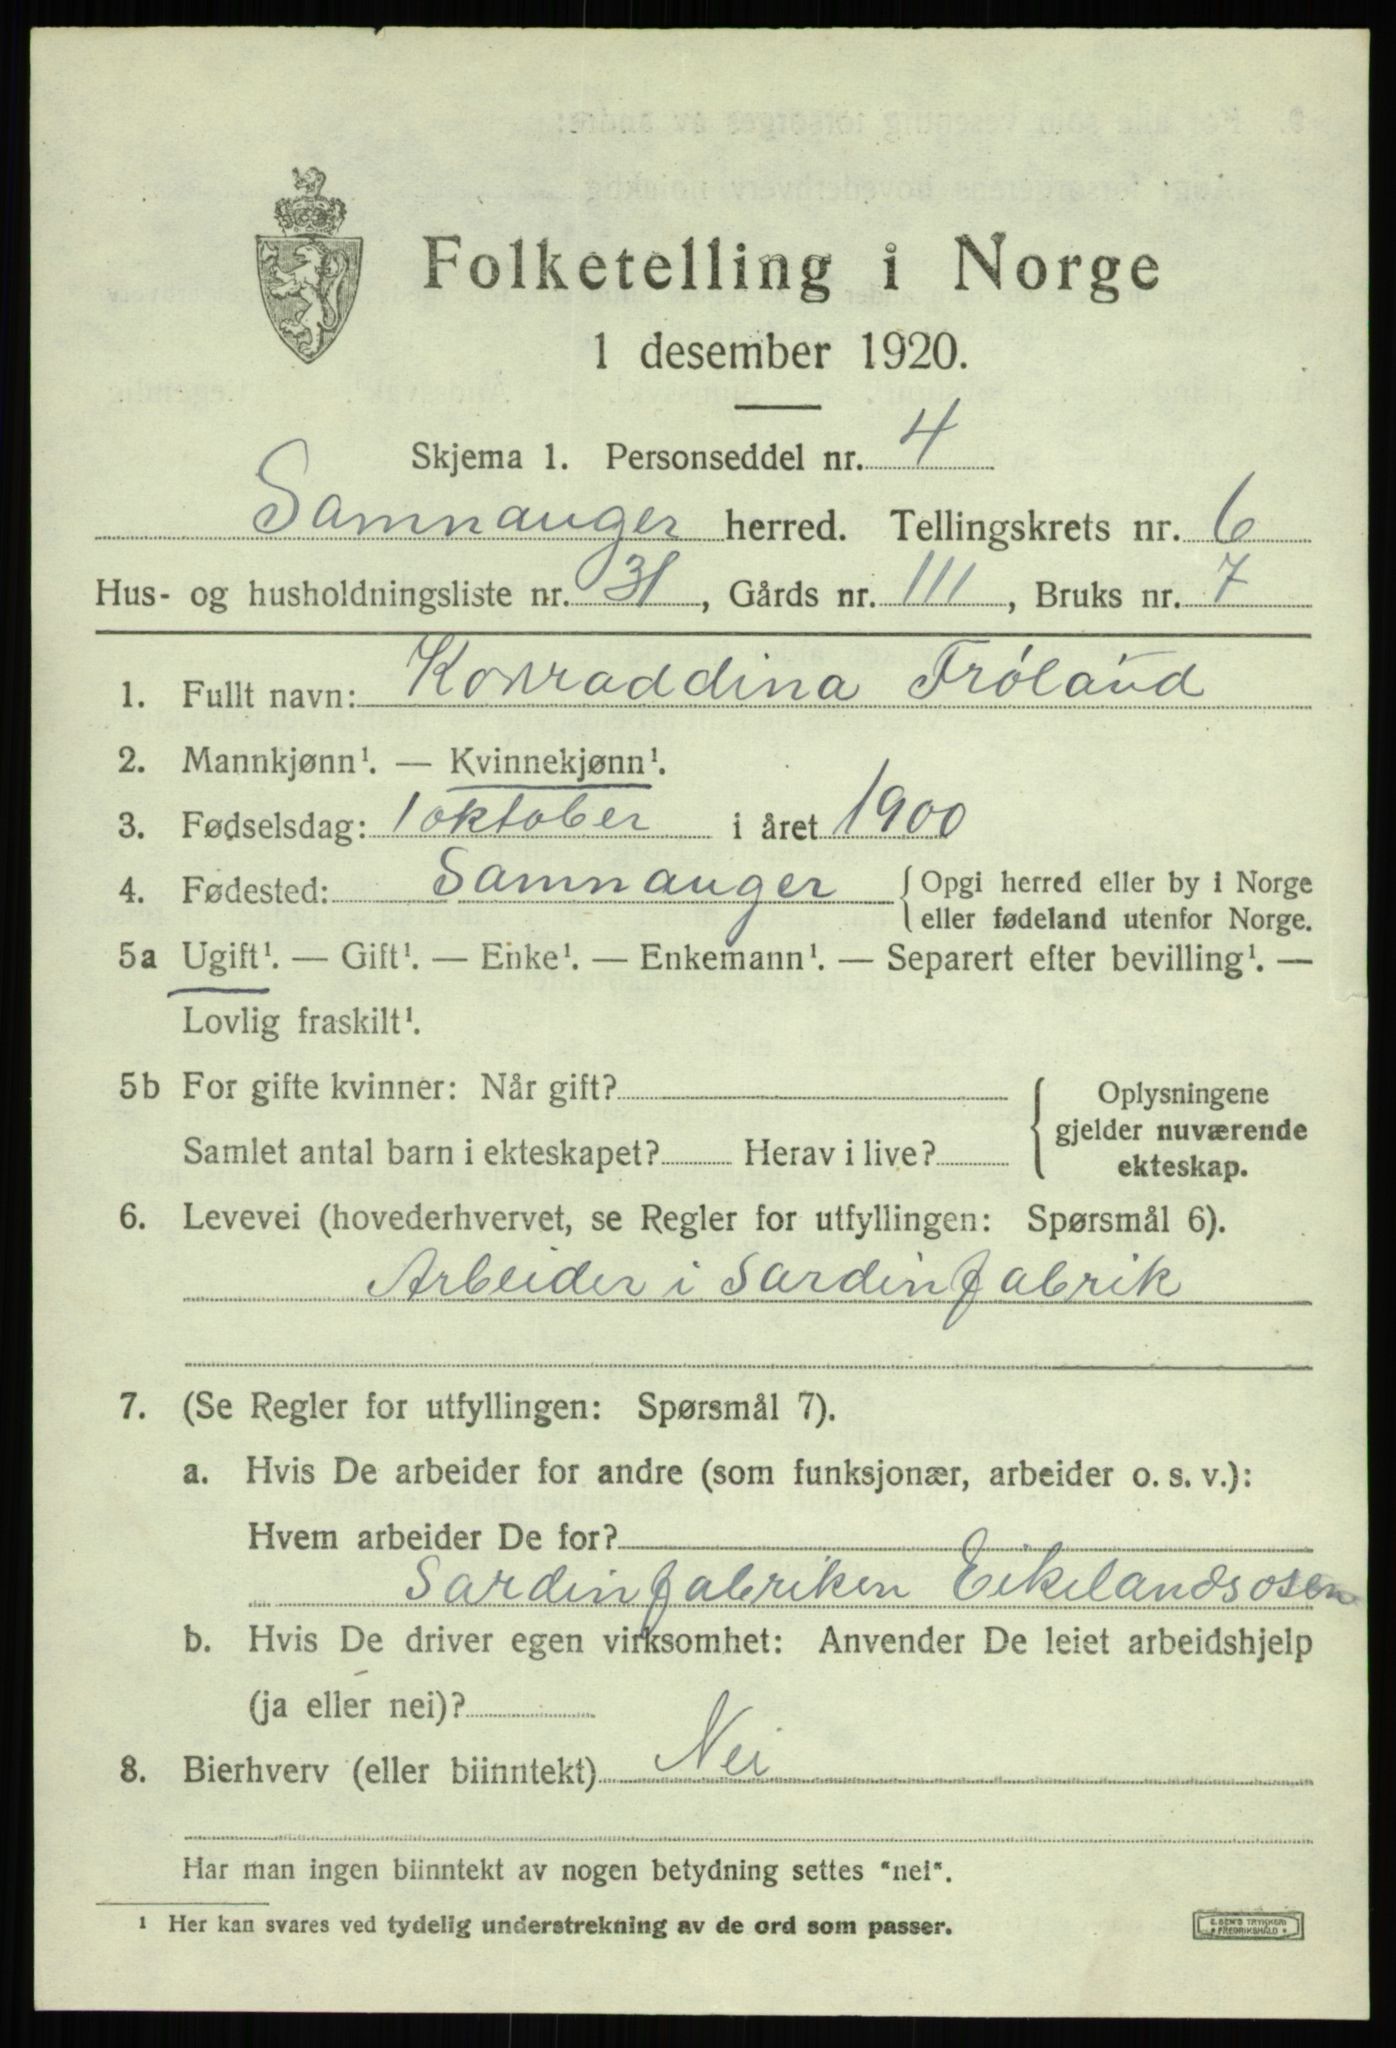 Folketelling i Norge
1 desember 1920.
Skjema 1. Personseddel nr. 4
Samnanger herred. Tellingskrets nr. 6
Hus- og husholdningsliste nr. 31, Gårds nr. 111, Bruks nr. 7
1. Fullt navn: Konraddina Frøland
2. Mannkjønn¹. — Kvinnekjønn¹.
3. Fødselsdag: 1 oktober i året 1900
4. Fødested: Samnanger {Opgi herred eller by i Norge
eller fødeland utenfor Norge.
5a Ugift¹. — Gift¹. — Enke¹. — Enkemann¹. — Separert efter bevilling¹. —
Lovlig fraskilt¹.
5b For gifte kvinner: Når gift? Oplysningene
gjelder nuværende
Samlet antal barn i ekteskapet? Herav i live? ekteskap.
6. Levevei (hovederhvervet, se Regler for utfyllingen: Spørsmål 6).
Arbeider i Sardinfabrik
7. (Se Regler for utfyllingen: Spørsmål 7).
a. Hvis De arbeider for andre (som funksjonær, arbeider o. s. v.):
Hvem arbeider De for?
Sardinfabriken Eikelandsosen
b. Hvis De driver egen virksomhet: Anvender De leiet arbeidshjelp
(ja eller nei)?
8. Bierhverv (eller biinntekt) Nei
Har man ingen biinntekt av nogen betydning settes "nei".
¹ Her kan svares ved tydelig understrekning av de ord som passer.
E. SEM'S TRYKKERI
FREDRIKSHALD